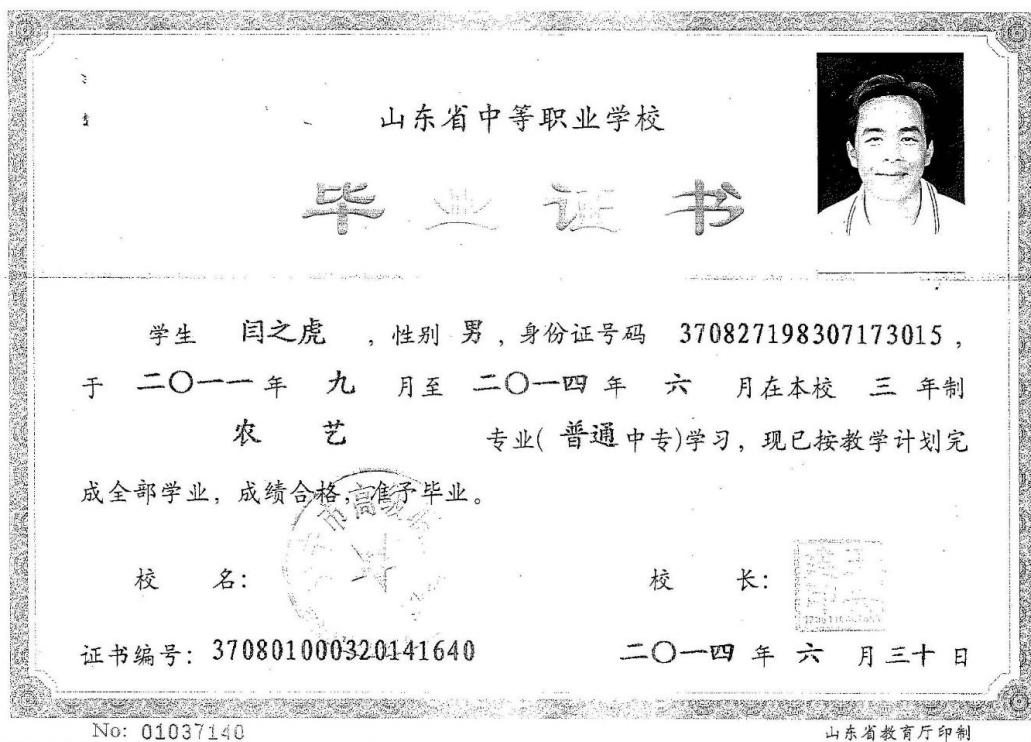 山东省中等职业学校
毕业证书
学生 闫之虎 ，性别 男 ，身份证号码 370827198307173015 ，
于 二〇一一 年 九 月至 二〇一四 年 六 月在本校 三 年制
农 艺 专业( 普通 中专)学习，现已按教学计划完
成全部学业，成绩合格，准予毕业。
市高级
校 名： 校 长：
证书编号：370801000320141640 二〇一四 年 六 月 三十 日
No: 01037140 山东省教育厅印制